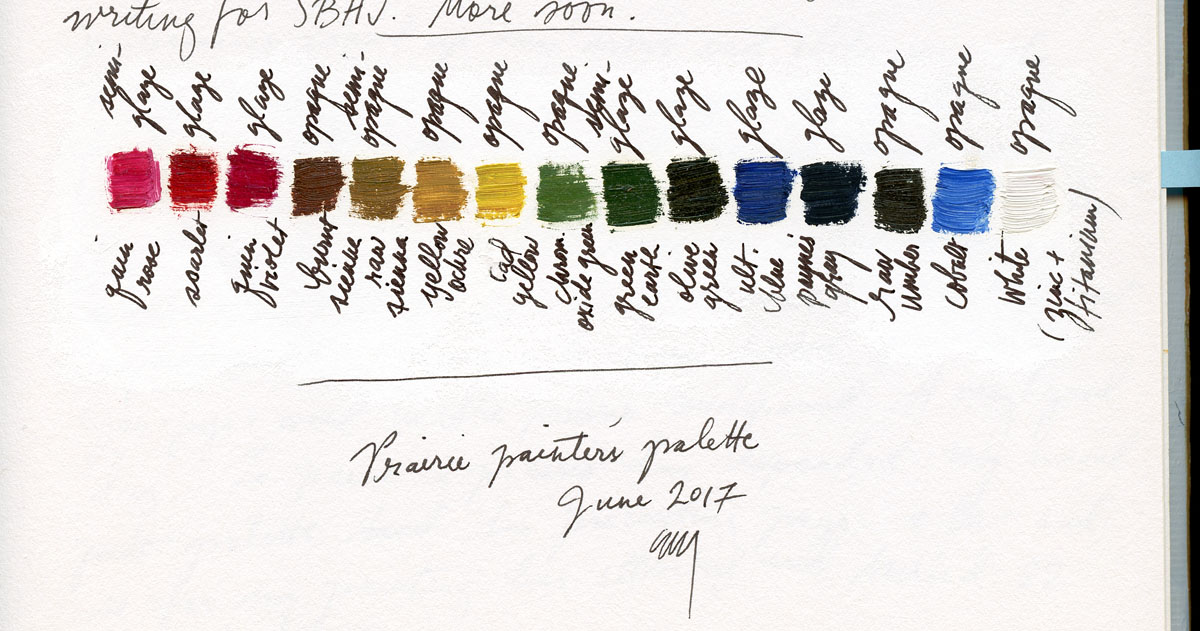 writing for SBAJ. More soon.
semi-
glaze
glaze
glaze
opaque
semi-
opaque
opaque
opaque
opaque
semi-
glaze
glaze
glaze
glaze
opaque
opaque
opaque
quin
rose
scarlet
quin
violet
burnt
sienna
raw
sienna
yellow
ochre
cad
yellow
chrom.
oxide green
green
earth
olive
green
ult.
blue
paynes
gray
raw
umber
cobalt
white
(zinc +
titanium)
Prairie painter's palette
June 2017